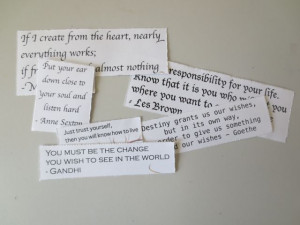 If I create from the heart, nearly
everything works;
if from almost nothing
Put your ear
down close to
your soul and
listen hard
- Anne Sexton
responsibility for your life.
Know that it is you who
where you want to
- Les Brown
Just trust yourself,
then you will know how to live
Destiny grants us our wishes,
but in its own way,
order to give us something
our wishes - Goethe
YOU MUST BE THE CHANGE
YOU WISH TO SEE IN THE WORLD
- GANDHI